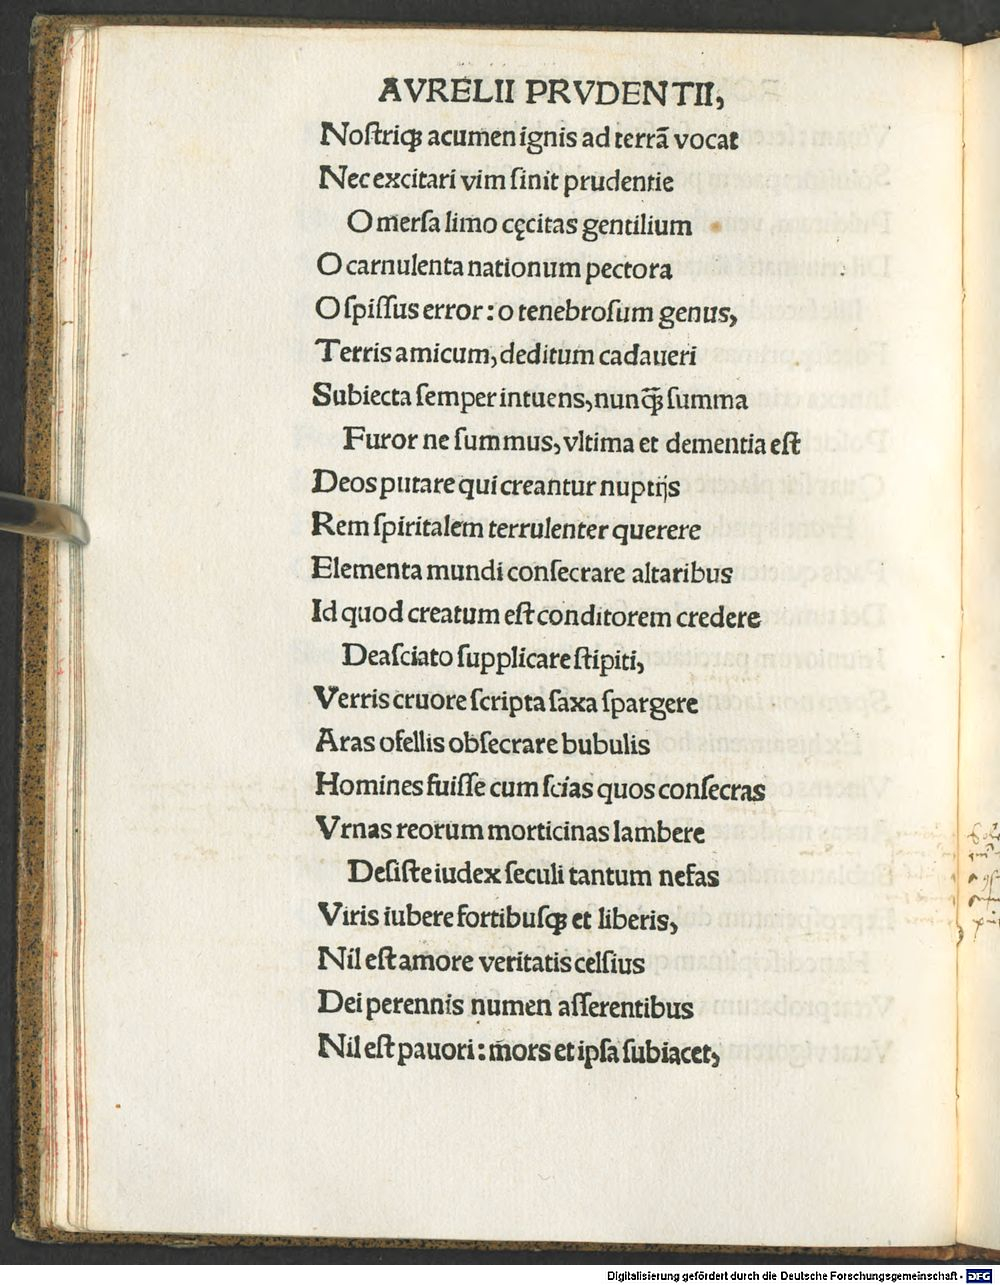 AVRELII PRVDENTII,
Noſtriqꝫ acumen ignis ad terrã vocat
Nec excitari vim ſinit prudentie
O merſa limo cęcitas gentilium
O carnulenta nationum pectora
O ſpiſſus error: o tenebroſum genus,
Terris amicum, deditum cadaueri
Subiecta ſemper intuens, nunq̃ꝫ ſumma
Furor ne ſummus, vltima et dementia eſt
Deos putare qui creantur nuptijs
Rem ſpiritalem terrulenter querere
Elementa mundi conſecrare altaribus
Id quod creatum eſt conditorem credere
Deaſciato ſupplicare ſtipiti,
Verris cruore ſcripta ſaxa ſpargere
Aras ofellis obſecrare bubulis
Homines fuiſſe cum ſcias quos conſecras
Vrnas reorum morticinas lambere
Deſiſte iudex ſeculi tantum nefas
Viris iubere fortibuſqꝫ et liberis,
Nil eſt amore veritatis celſius
Dei perennis numen aſſerentibus
Nil eſt pauori: mors et ipſa ſubiacet,
Digitalisierung gefördert durch die Deutsche Forschungsgemeinschaft - DFG